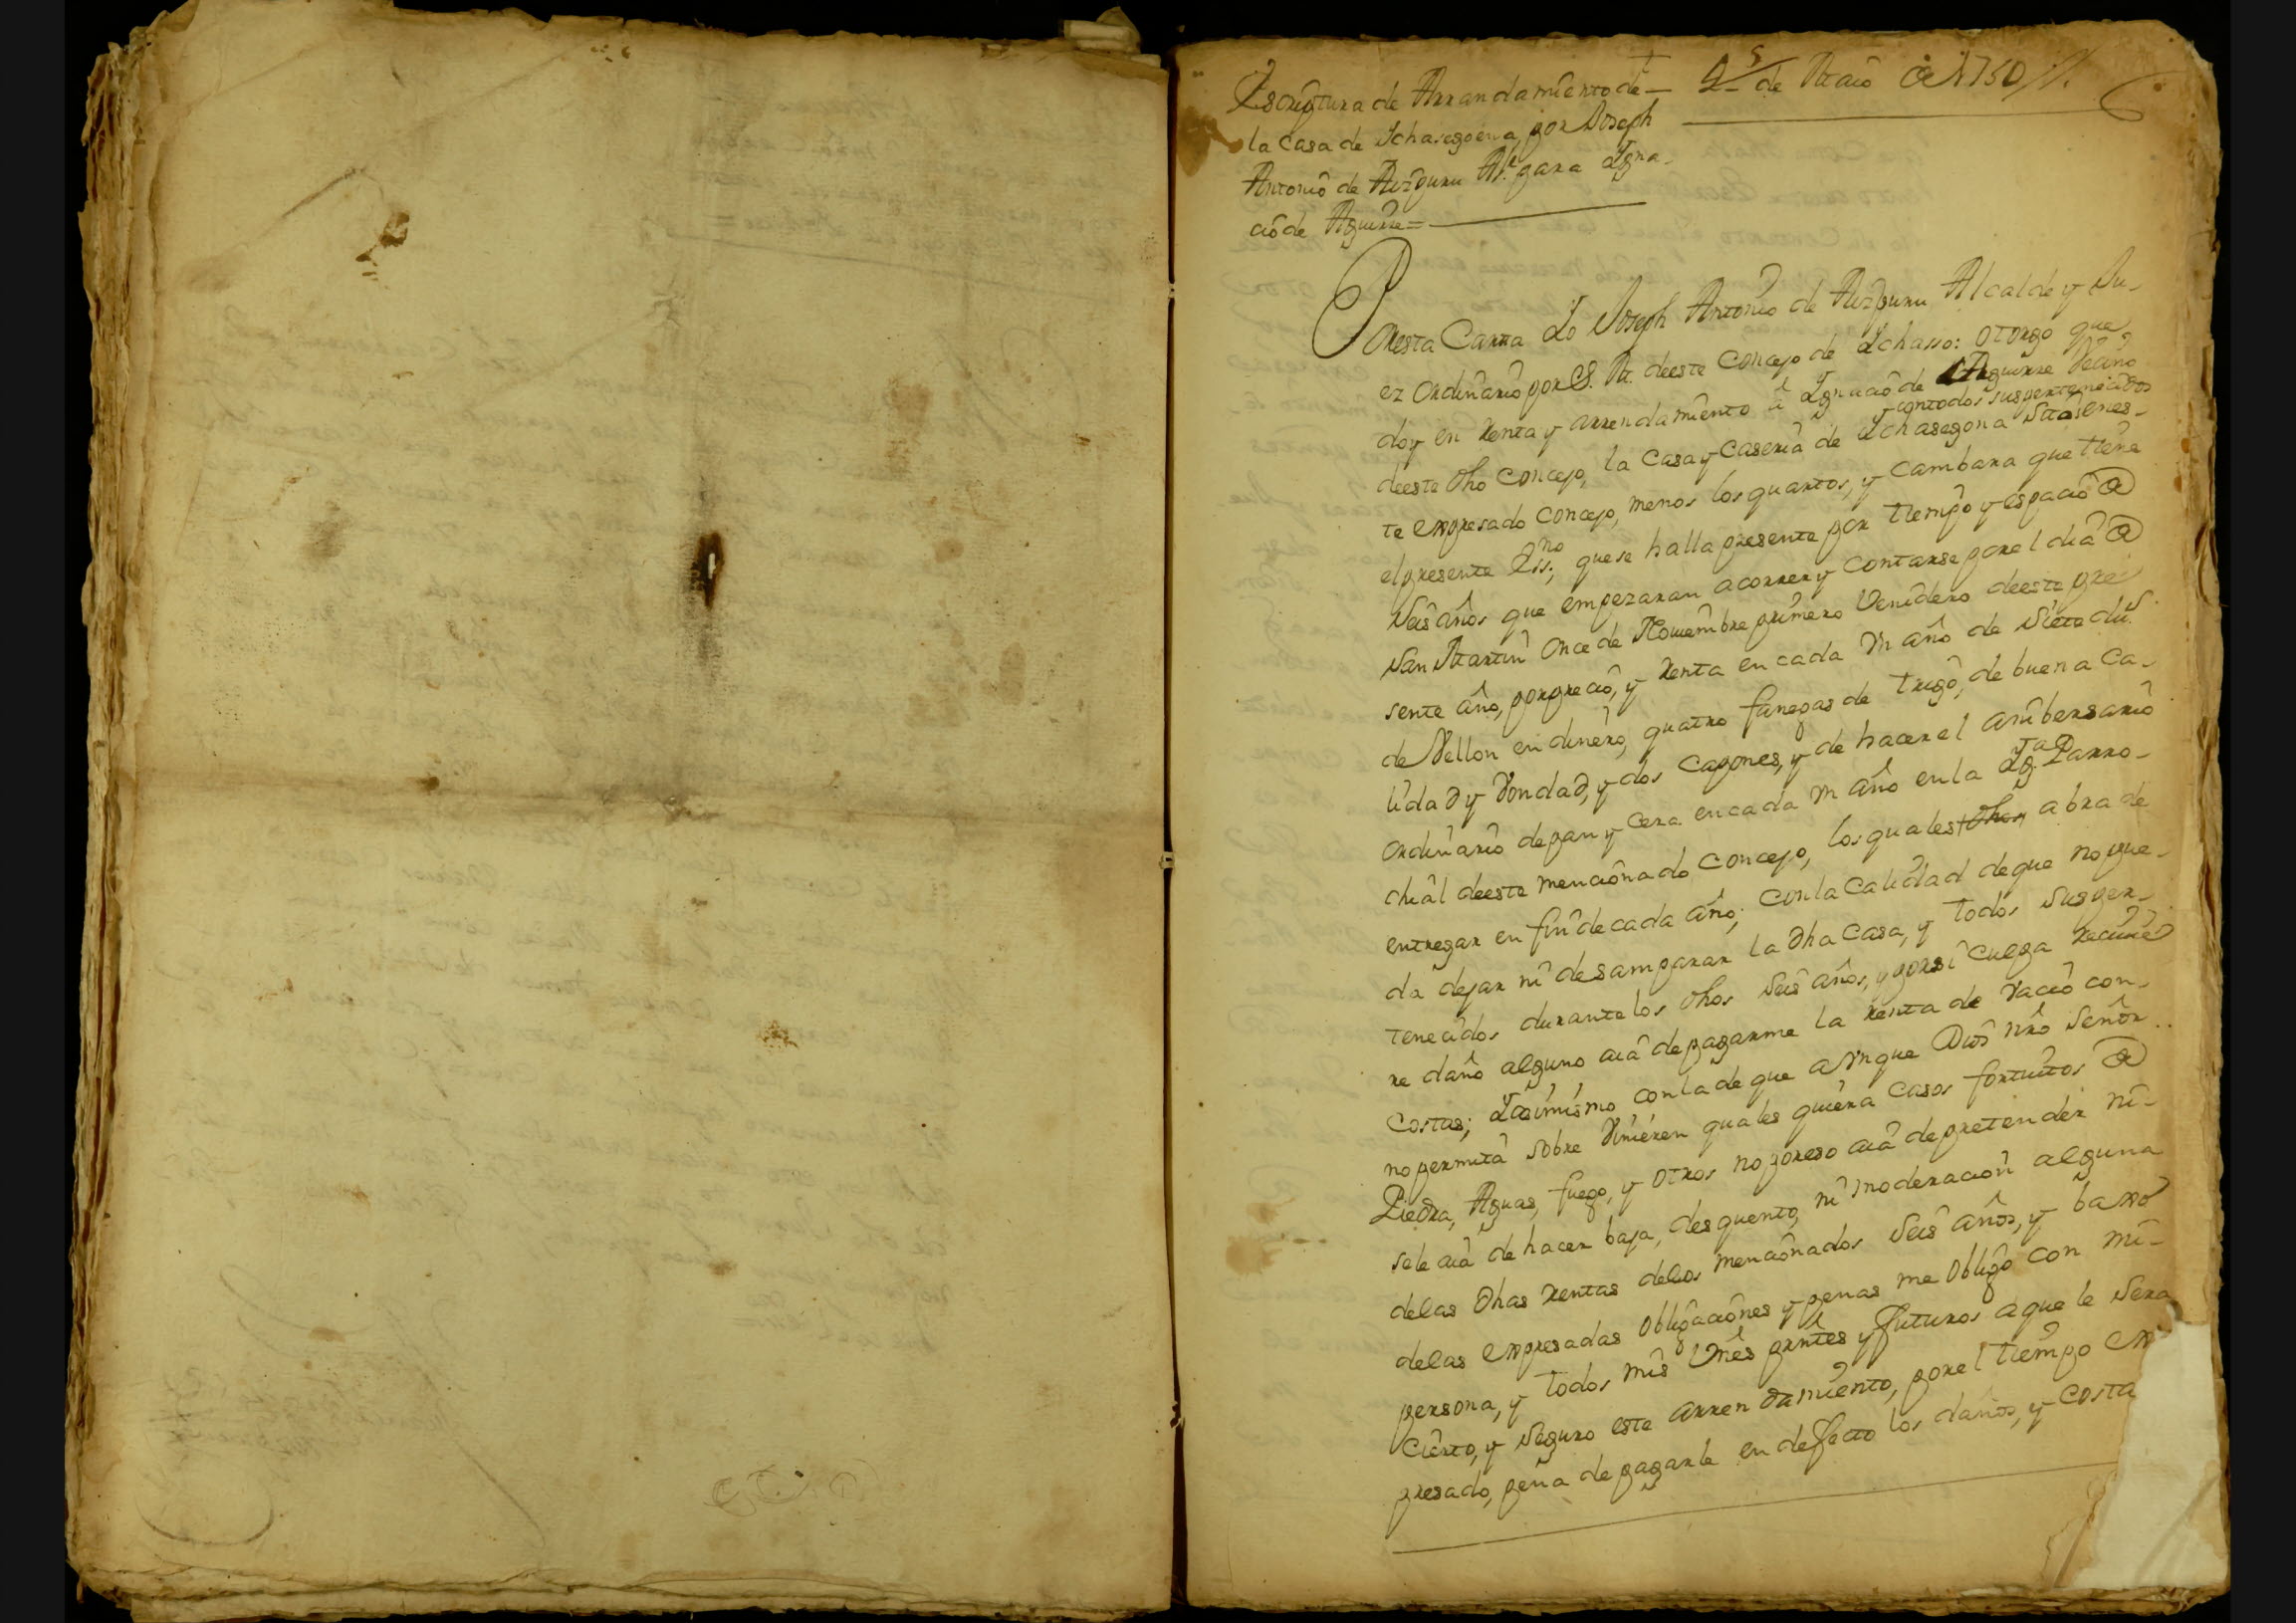 Escriptura de Arrandamiento de
la Casa de Ychasegoena, por Joseph
Antonio de Auzquru Al.e para Igna-
cio de Aguirre =
de Maio de 1750
Poresta Carta Yo Joseph Antonio de Auzquru Alcalde y Ju-
ez Ordinario por S. M. deeste Concejo de Ychasso: Otorgo que
doy en Renta y arrendamiento a Ignacio de Aguirre Vecino
y contodos suspertenecidos
deeste dho Concejo, la Casa y Caseria de Ychasegona Sita enes-
te expresado Concejo, menos los quartos, y Cambara que tiene
elpresente Ess.no, quese halla presente por tiempo y espacio de
Seis años que empezaran acorrer y Contarse por el dia de
San Martin Once de Nouiembre primero Venidero deeste pre
sente año, por precio, y Renta en cada Vn año de Siete du.s
de Vellon en dinero, quatro fanegas de trigo, de buena Ca-
lidad y Vondad, y dos Capones, y de hacer el aniversario
Ordinario de pan y Cera en cada Vn año en la Yg.a Parro-
chial deeste mencionado Concejo, los quales dhos abra de
entregar en fin de cada año; Con la Calidad de que no pue-
da dejar ni desamparar la dha Casa, y todos Susper-
tenecidos durante los dhos Seis años, y porsi Culpa
re daño alguno aia de pagarme la Renta de Vacio con
Costas; Yasimismo con la de que aVnque Dios nro Señor
no permita Sobre Vinieren quales quiera Casos fortuitos de
Piedra, Aguas, fuego, y Otros no poreso aia de pretender ni-
sele aia de hacer baja, desquento, ni moderacion alguna
delas dhas Rentas delos mencionados Seis años, y baxo
delas expresadas Obligaciones y penas me Obligo con mi-
persona, y todos mis Vnês prntes y futuros aque le Sera
Cierto, y Seguro este arrendamiento, por el tiempo ex
presado, pena de pagarle en defecto los daños, y Costa